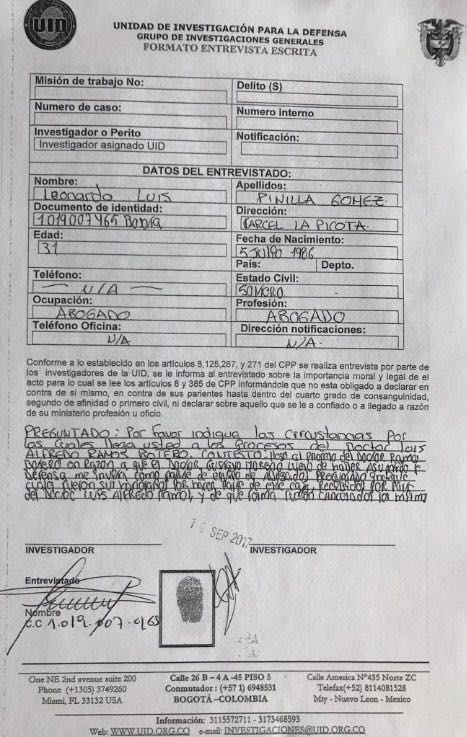 UID
UNIDAD DE INVESTIGACIÓN PARA LA DEFENSA
GRUPO DE INVESTIGACIONES GENERALES
FORMATO ENTREVISTA ESCRITA
Misión de trabajo No:
Delito (S)
Numero de caso:
Numero interno
Investigador o Perito
Notificación:
Investigador asignado UID
DATOS DEL ENTREVISTADO:
Nombre:
Apellidos:
Leonardo Luis
PINILLA GOMEZ
Documento de identidad:
Dirección:
1.019007465 Bogotá
CARCEL LA PICOTA
Edad:
Fecha de Nacimiento:
31
5 Julio 1986
País: Depto.
Teléfono:
Estado Civil:
N/A
SOLTERO
Ocupación:
Profesión:
ABOGADO
ABOGADO
Teléfono Oficina:
Dirección notificaciones:
N/A
N/A
Conforme a lo establecido en los artículos 8,125,267, y 271 del CPP se realiza entrevista por parte de
los investigadores de la UID, se le informa al entrevistado sobre la importancia moral y legal de el
acto para lo cual se lee los artículos 8 y 385 de CPP informándole que no esta obligado a declarar en
contra de si mismo, en contra de sus parientes hasta dentro del cuarto grado de consanguinidad,
segundo de afinidad o primero civil, ni declarar sobre aquello que se le a confiado o a llegado a razón
de su ministerio profesión u oficio.
PREGUNTADO: Por favor indique las circustancias Por
las cuales llega usted a los Procesos del Doctor Luis
ALFREDO RAMOS BOTERO. CONTESTO: llego al proceso del Doctor Ramos
Botero en razón a que el Doctor Gustavo Moreno luego de haber asumido la
Defensa me
del Doctor Luis Alfredo Ramos, y de que forma
SEP 2017
INVESTIGADOR
INVESTIGADOR
Entrevistado
Nombre
C.C 1.019.007.465
One NE 2nd avenue suite 200
Phone (+1305) 3749260
Miami, FL 33132 USA
Calle 26 B – 4 A -45 PISO 5
Conmutador : (+57 1) 6948531
BOGOTÁ–COLOMBIA
Calle America N°435 Norte ZC
Telefax(+52) 8114081528
Mty - Nuevo Leon - Mexico
Información: 3115572711 - 3173468593
Web: WWW.UID.ORG.CO e-mail: INVESTIGACIONES@UID.ORG.CO